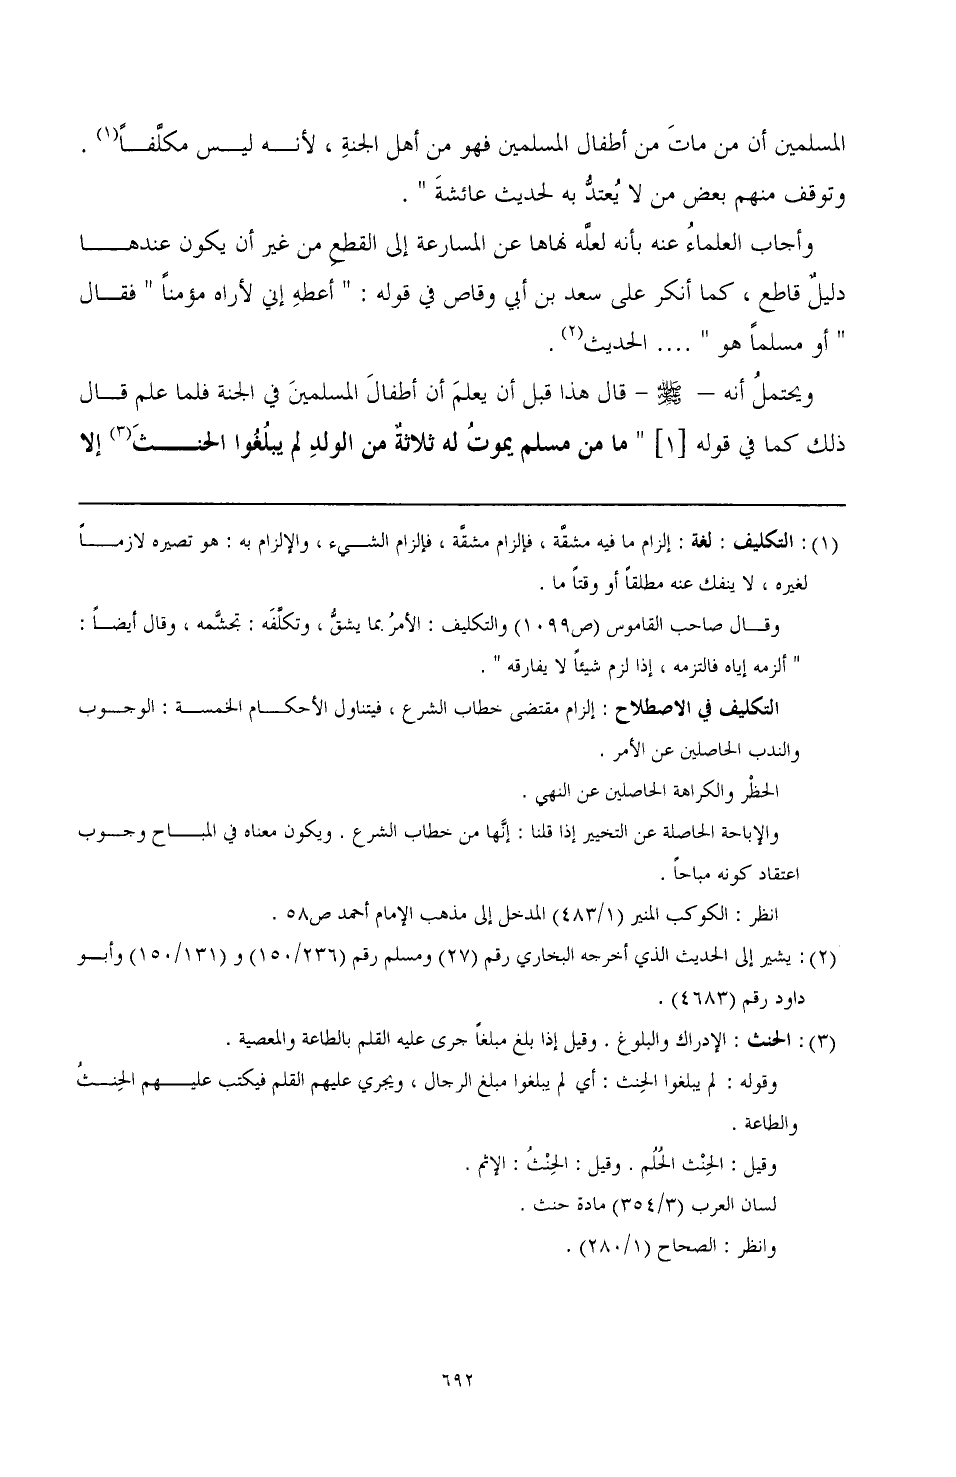 المسلمين أن من ماتَ من أطفال المسلمين فهو من أهل الجنةِ ، لأنه ليس مكلَّفاً(١) .
وتوقف منهم بعض من لا يُعتدُّ به لحديث عائشةَ " .
وأجاب العلماءُ عنه بأنه لعلَّه نهاها عن المسارعة إلى القطعِ من غير أن يكون عندها
دليلٌ قاطع ، كما أنكر على سعد بن أبي وقاص في قوله : " أعطهِ إني لأراه مؤمناً " فقال
" أو مسلماً هو " .... الحديث(٢) .
ويحتملُ أنه – ﷺ – قال هذا قبل أن يعلمَ أن أطفالَ المسلمينَ في الجنة فلما علم قال
ذلك كما في قوله [١] " ما من مسلم يموتُ له ثلاثةٌ من الولدِ لم يبلُغُوا الحنثَ(٣) إلا
(١) : التكليف : لغة : إلزام ما فيه مشقَّة ، فإلزام مشقَّة ، فإلزام الشيء ، والإلزام به : هو تصيره لازماً
لغيره ، لا ينفك عنه مطلقاً أو وقتاً ما .
وقال صاحب القاموس (ص١٠٩٩) والتكليف : الأمرُ بما يشقُّ ، وتكلَّفَه : تجشَّمه ، وقال أيضاً :
" ألزمه إياه فالتزمه ، إذا لزم شيئاً لا يفارقه " .
التكليف في الاصطلاح : إلزام مقتضى خطاب الشرع ، فيتناول الأحكام الخمسة : الوجوب
والندب الحاصلين عن الأمر .
الحظْر والكراهة الحاصلين عن النهي .
والإباحة الحاصلة عن التخيير إذا قلنا : إنَّها من خطاب الشرع . ويكون معناه في المباح وجوب
اعتقاد كونه مباحاً .
انظر : الكوكب المنير (٤٨٣/١) المدخل إلى مذهب الإمام أحمد ص٥٨ .
(٢) : يشير إلى الحديث الذي أخرجه البخاري رقم (٢٧) ومسلم رقم (١٥٠/٢٣٦) و (١٥٠/١٣١) وأبو
داود رقم (٤٦٨٣) .
(٣) : الحنث : الإدراك والبلوغ . وقيل إذا بلغ مبلغاً جرى عليه القلم بالطاعة والمعصية .
وقوله : لم يبلغوا الحِنث : أي لم يبلغوا مبلغ الرجال ، ويجري عليهم القلم فيكتب عليهم الحِنثُ
والطاعة .
وقيل : الحِنْث الحُلُم . وقيل : الحِنْثُ : الإثم .
لسان العرب (٣٥٤/٣) مادة حنث .
وانظر : الصحاح (٢٨٠/١) .
٦٩٢